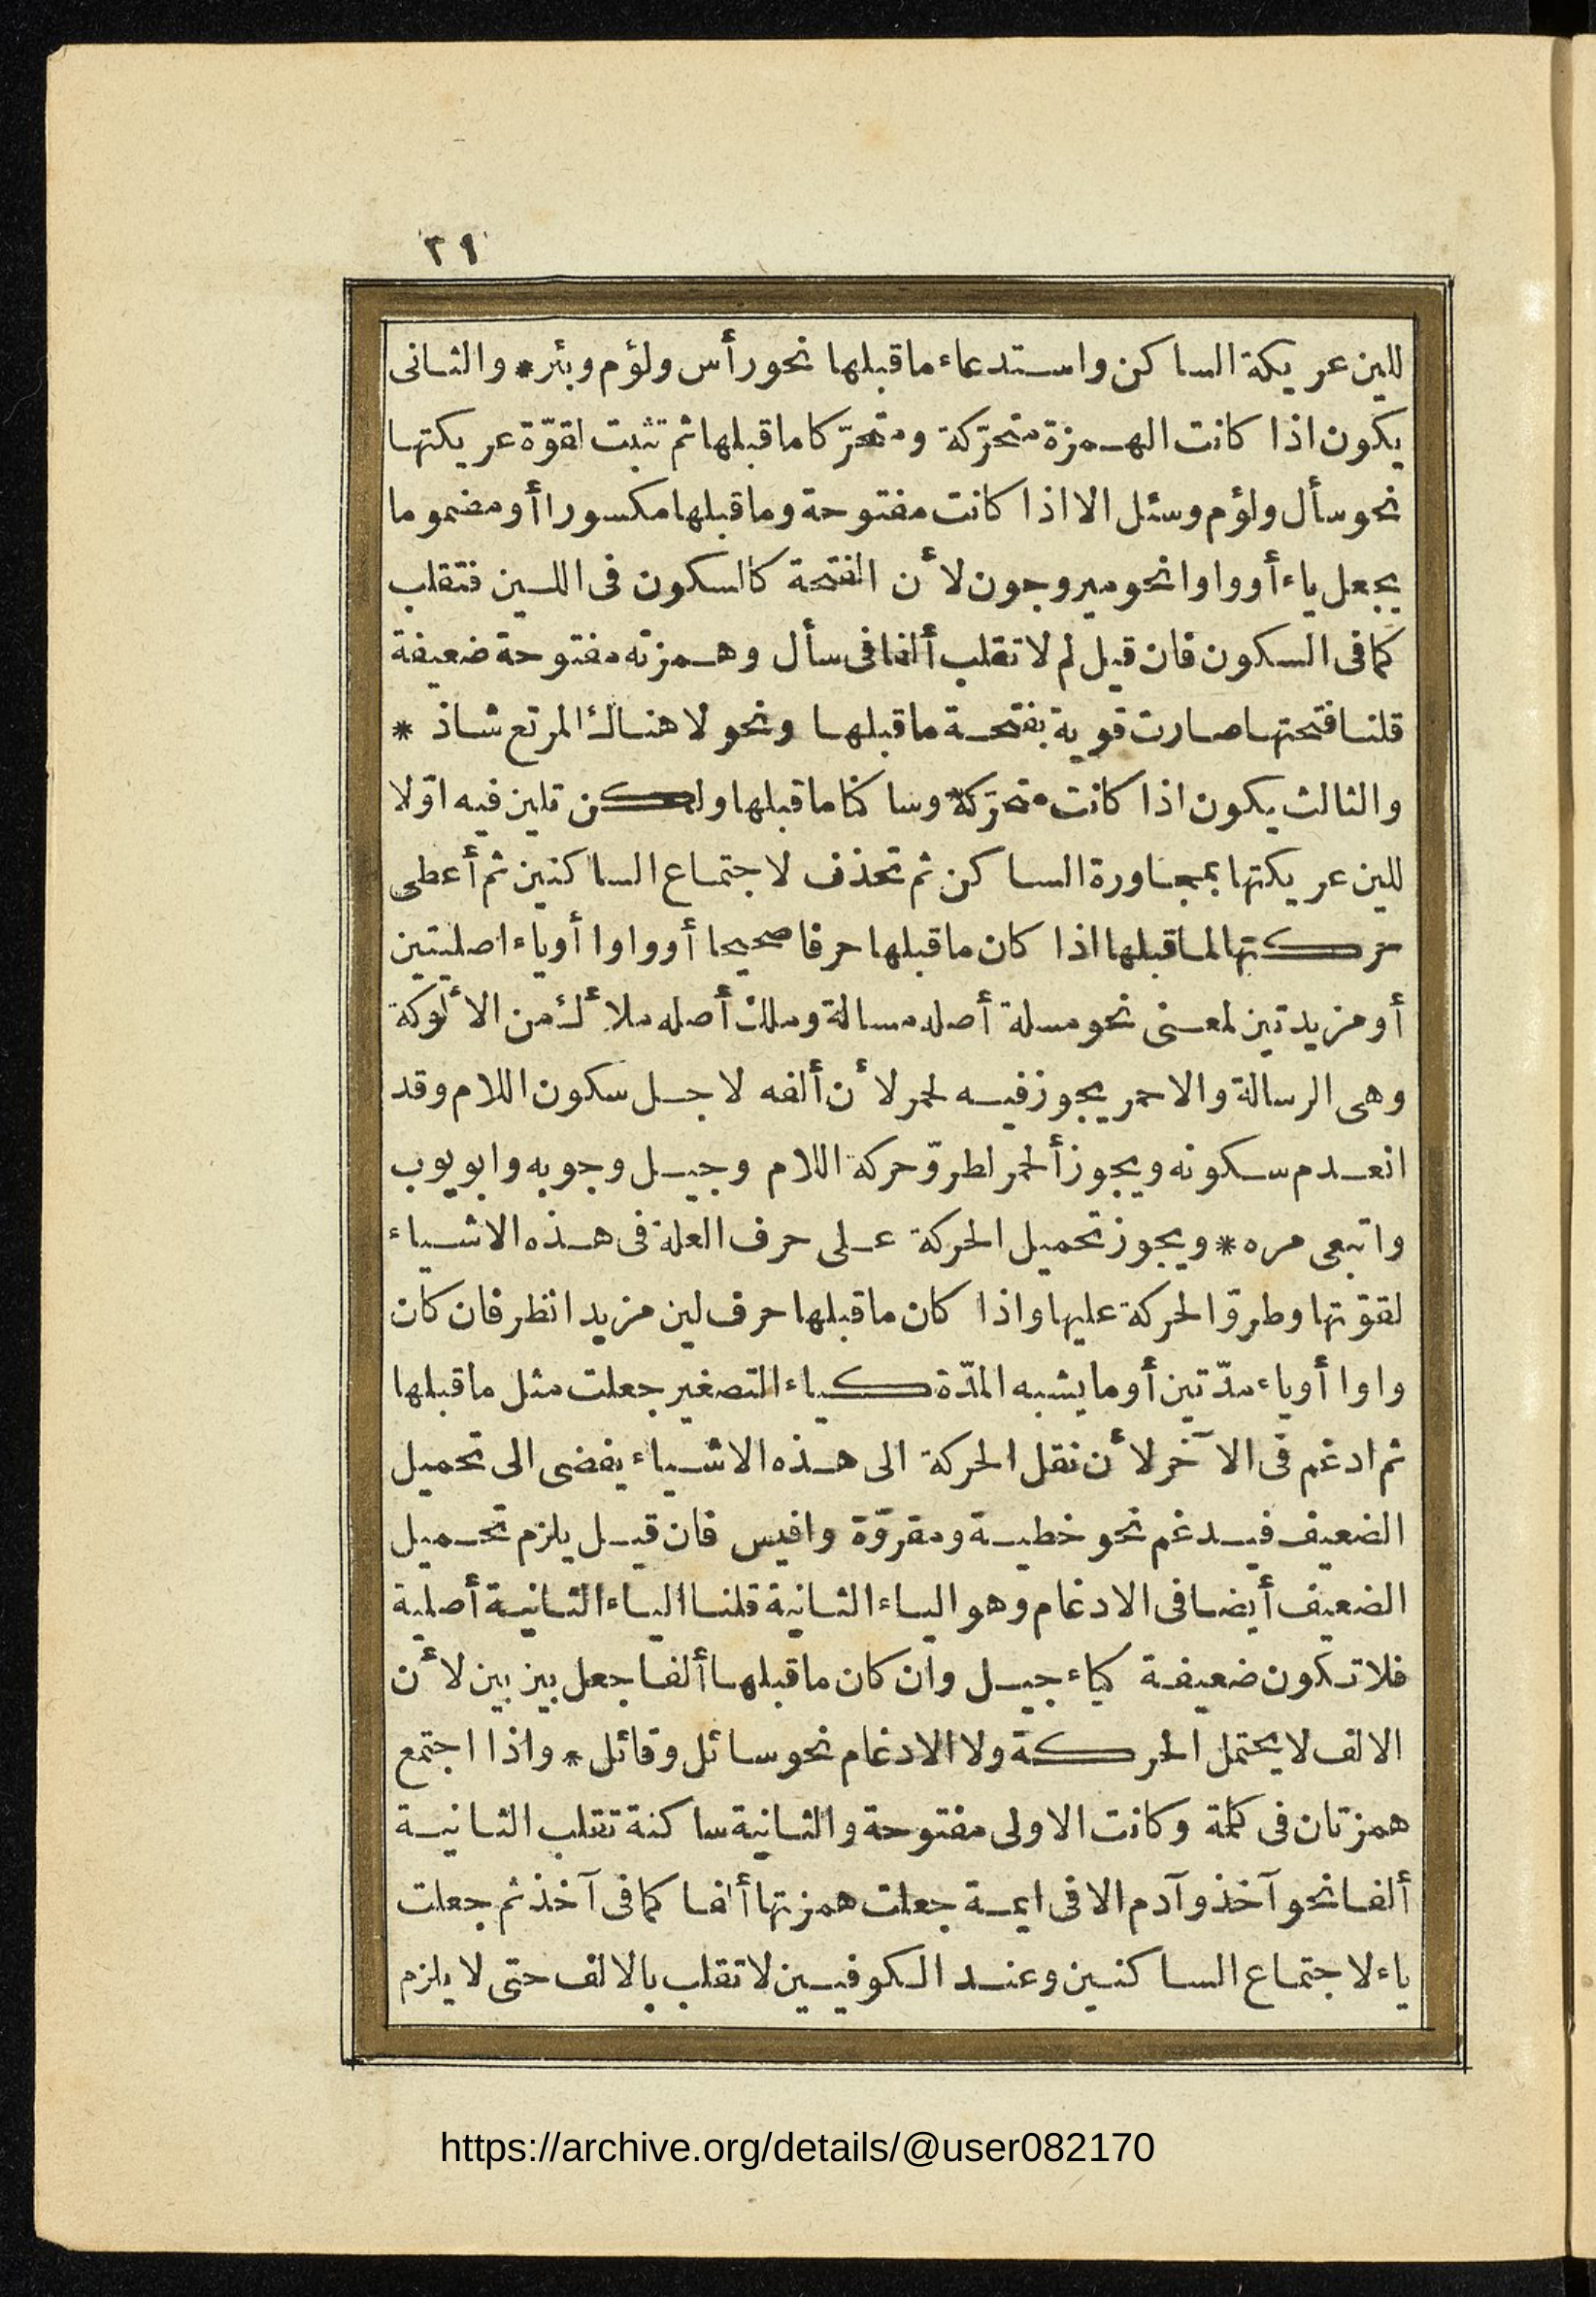 ٣٩
للين عريكة الساكن واستدعاء ماقبلها نحو رأس ولؤم وبئر * والثانى
يكون اذا كانت الهمزة متحرّكة ومتحرّكا ماقبلها ثم تثبت لقوّة عريكتها
نحو سأل ولؤم وسئل الا اذا كانت مفتوحة وماقبلها مكسورا أو مضموما
يجعل ياء أو واوا نحو مير وجون لأن الفتحة كالسكون فى اللين فتقلب
كما فى السكون فان قيل لم لا تقلب ألفا فى سأل وهمزته مفتوحة ضعيفة
قلنا فتحتها صارت قوية بفتحة ماقبلها ونحو لا هناك المرتع شاذ *
والثالث يكون اذا كانت متحرّكة وساكنا ماقبلها ولكن تلين فيه اوّلا
للين عريكتها بمجاورة الساكن ثم تحذف لاجتماع الساكنين ثم أعطى
حركتها لماقبلها اذا كان ماقبلها حرفا صحيحا أو واوا أو ياء اصليتين
أو مزيدتين لمعنى نحو مسلة أصله مسالة وملك أصله ملأك من الألوكة
وهى الرسالة والاحمر يجوز فيه لحمر لأن ألفه لاجل سكون اللام وقد
انعدم سكونه ويجوز ألحمر لطروّ حركة اللام وجيل وجوبه وابويوب
واتبعى مره * ويجوز تحميل الحركة على حرف العلة فى هذه الاشياء
لقوّتها وطروّ الحركة عليها واذا كان ماقبلها حرف لين مزيدا نظر فان كان
واوا أو ياء مدّتين أو مايشبه المدّة كياء التصغير جعلت مثل ماقبلها
ثم ادغم فى الآخر لأن نقل الحركة الى هذه الاشياء يفضى الى تحميل
الضعيف فيدغم نحو خطية ومقروّة وافيس فان قيل يلزم تحميل
الضعيف أيضا فى الادغام وهو الياء الثانية قلنا الياء الثانية أصلية
فلا تكون ضعيفة كياء جيل وان كان ماقبلها ألفا جعل بين بين لأن
الالف لايحتمل الحركة ولا الادغام نحو سائل وقائل * واذا اجتمع
همزتان فى كلمة وكانت الاولى مفتوحة والثانية ساكنة تقلب الثانية
ألفا نحو آخذ وآدم الا فى ايمة جعلت همزتها ألفا كما فى آخذ ثم جعلت
ياء لاجتماع الساكنين وعند الكوفيين لاتقلب بالالف حتى لا يلزم
https://archive.org/details/@user082170